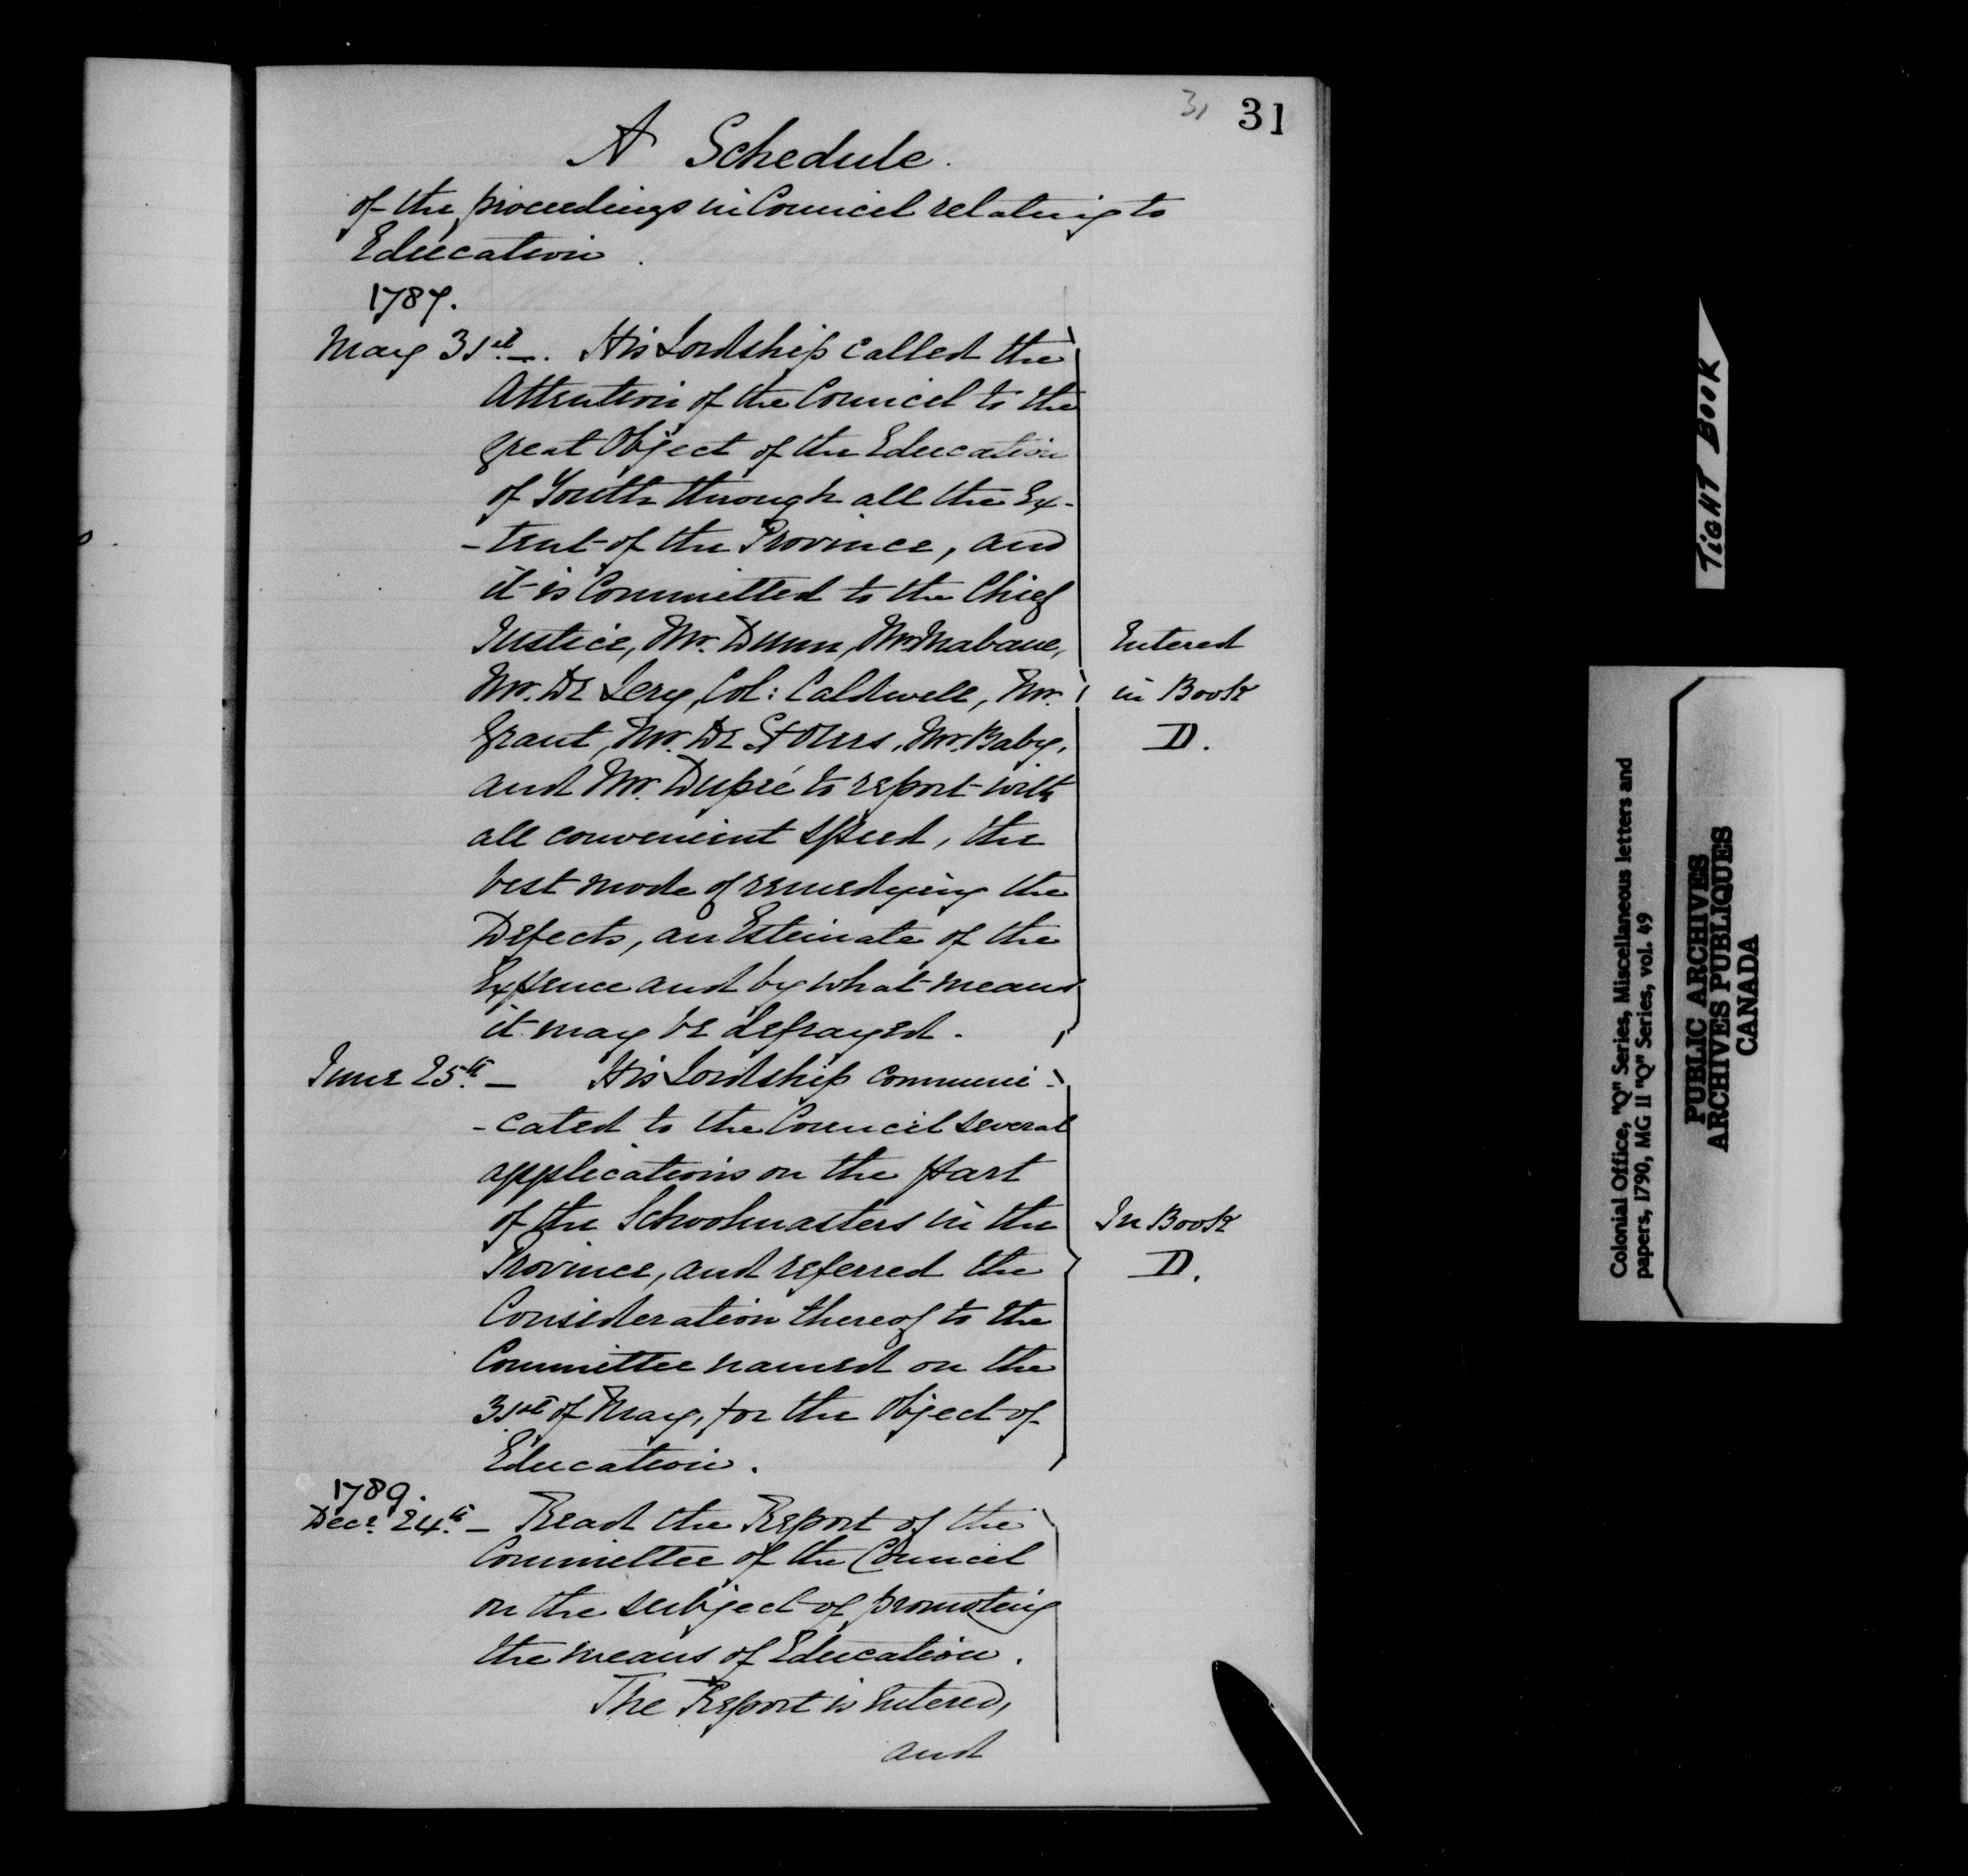 31 31
A Schedule.
of the proceedings in Council relating to
Education.
1787.
May 31st. —. His Lordship called the
Attention of the Council to the
great Object of the Education
of Youth through all the Ex-
-tent of the Province, and
it is Committed to the Chief
Justice, Mr. Dunn, Mr. Mabane,
Mr. De Lery, Col: Caldwell, Mr.
Grant, Mr. De St Ours, Mr. Baby,
and Mr. Dupré to report with
all convenient speed, the
best mode of remedying the
Defects, an Estimate of the
Expence and by what means
it may be defrayed.
Entered
in Book
D.
June 25th. — His Lordship communi-
-cated to the Council several
applications on the part
of the Schoolmasters in the
Province, and referred the
Consideration thereof to the
Committee named on the
31st of May, for the Object of
Education.
In Book
D.
1789.
Decr. 24th. — Read the Report of the
Committee of the Council
on the subject of promoting
the means of Education.
The Report is Entered,
and
TIGHT BOOK
Colonial Office, "Q" Series, Miscellaneous letters and
papers, 1790, MG 11 "Q" Series, vol. 49
PUBLIC ARCHIVES
ARCHIVES PUBLIQUES
CANADA